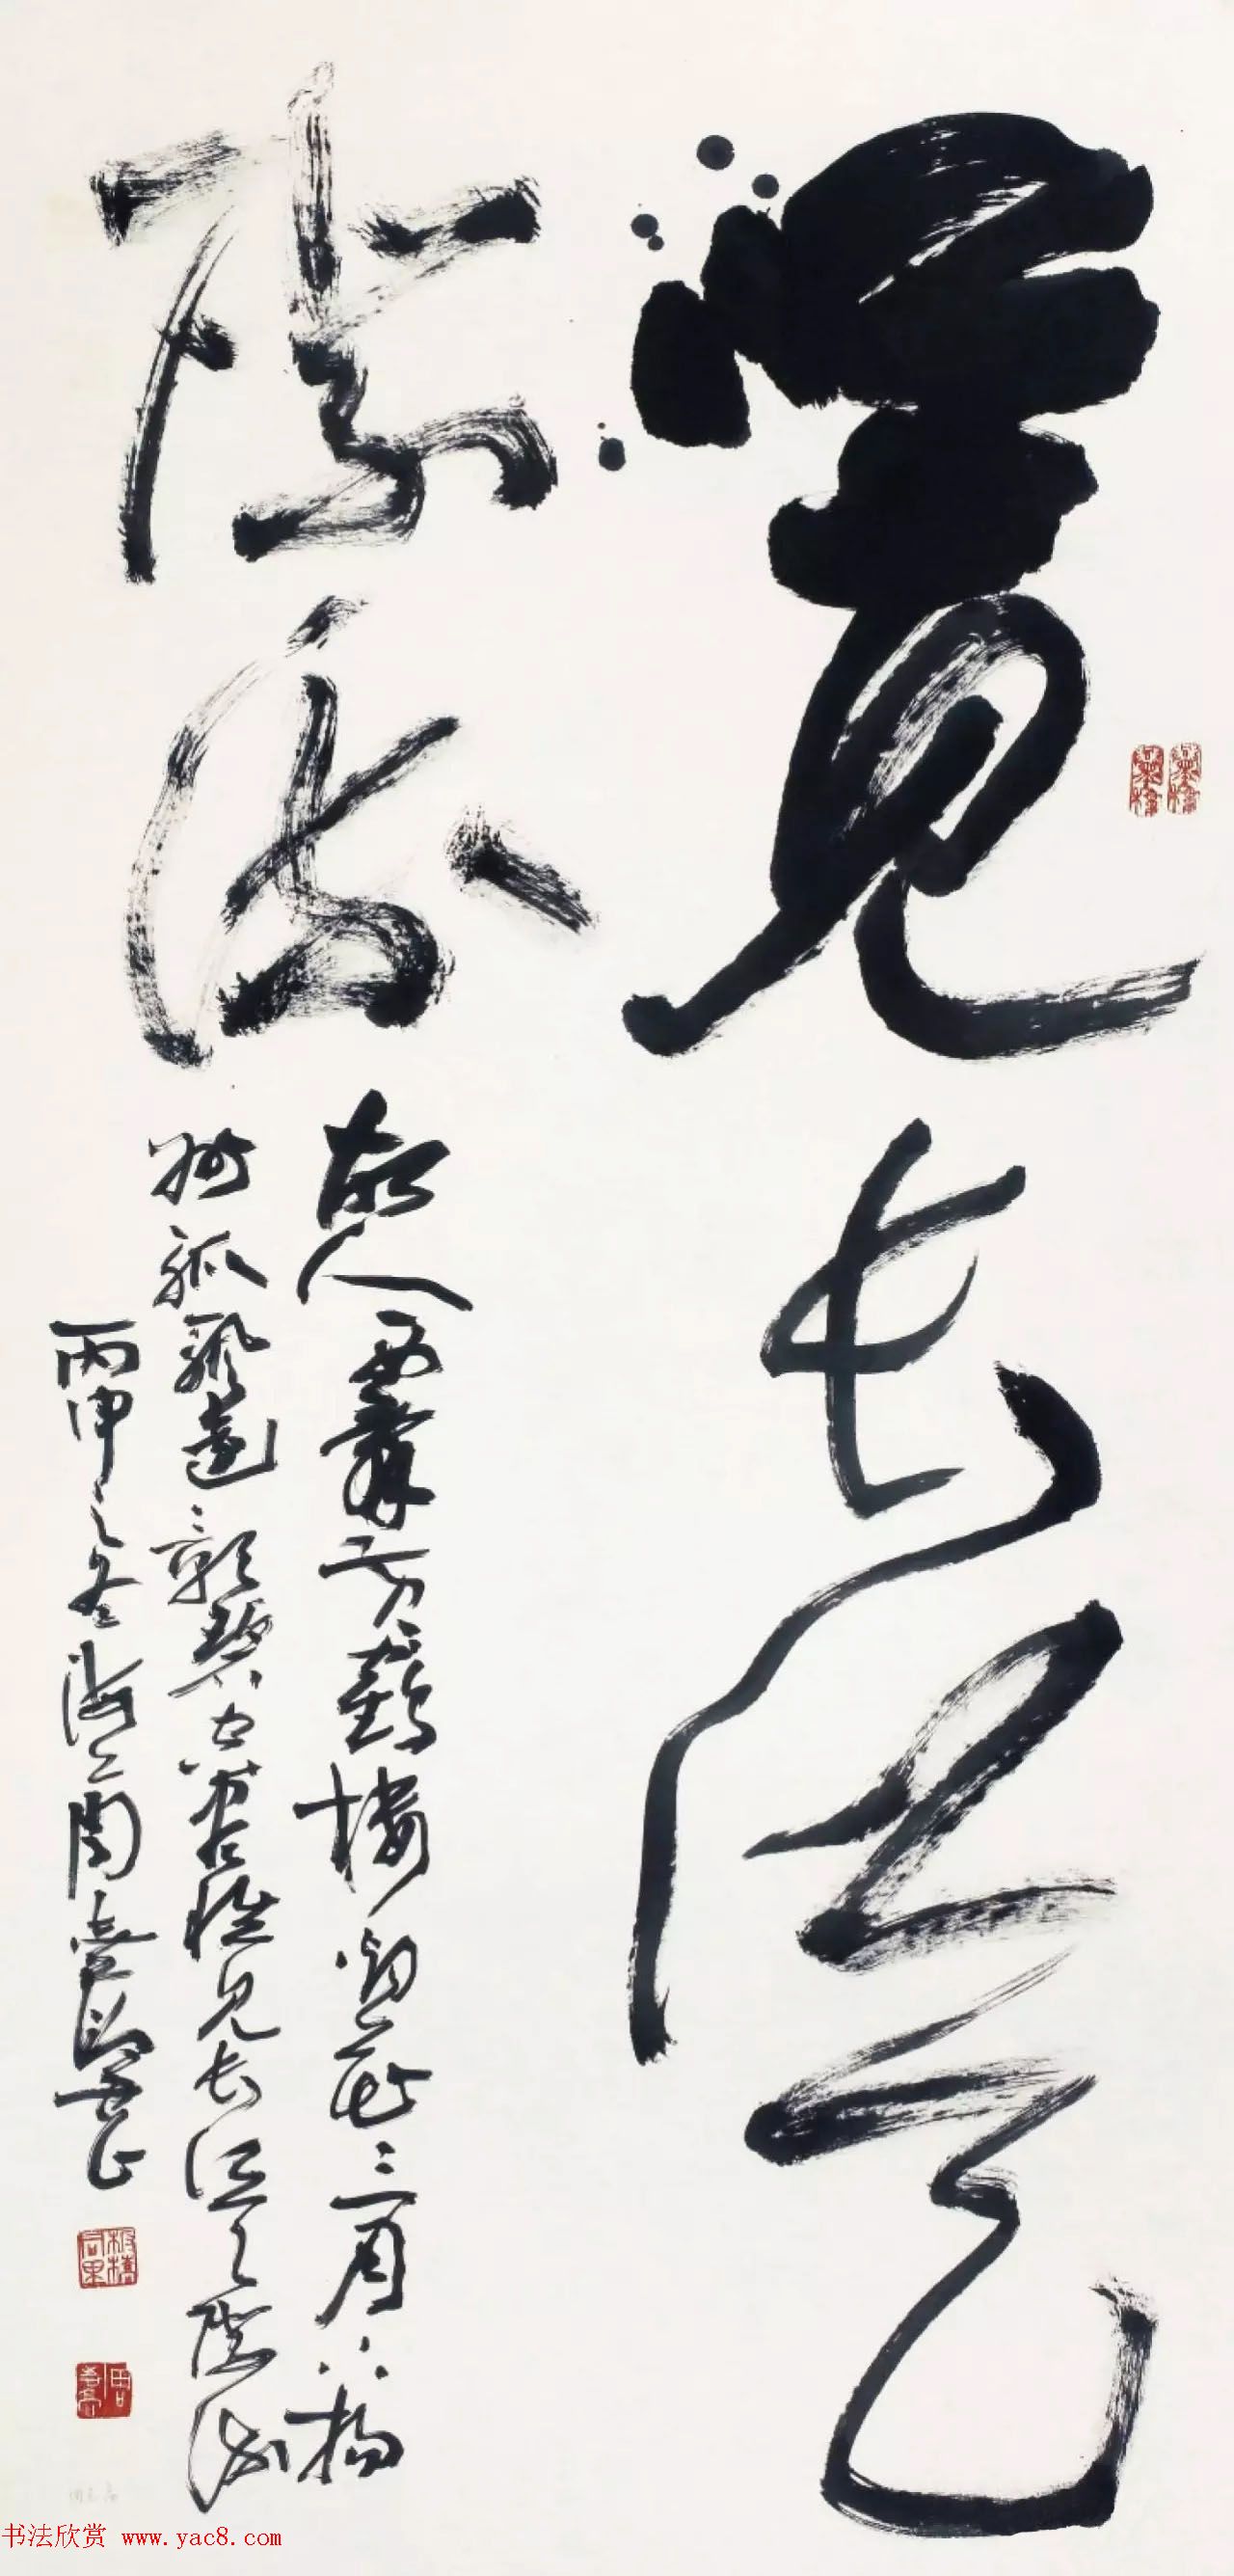 唯見長江天
際流
故人西辭黃鶴樓煙花三月下揚
州孤帆遠影碧空盡惟見長江天際流
丙申之冬海上周志高
书法欣赏 www.yac8.com